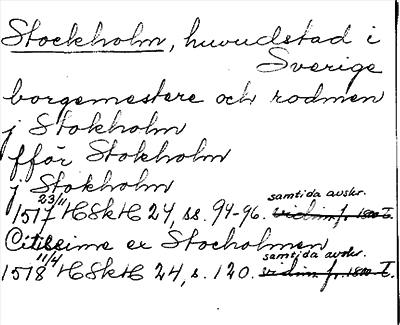 Stockholm, huvudstad i
Sverige
borgemestere och rodmen
j Stokholm
fför Stokholm
j Stokholm
1517 23/11 HSkH 24, ss. 94-96. samtida avskr. vidim. fr. 1800-T.
ex Stocholmen
1518 11/4 HSkH 24, s. 120. samtida avskr. vidim. fr. 1800-T.